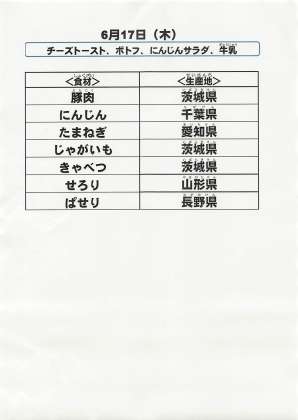 6月17日（木）
チーズトースト、ポトフ、にんじんサラダ、牛乳
＜食材＞ ＜生産地＞
豚肉 茨城県
にんじん 千葉県
たまねぎ 愛知県
じゃがいも 茨城県
きゃべつ 茨城県
せろり 山形県
ぱせり 長野県